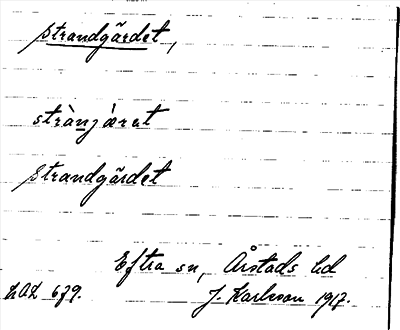 strandgärdet,
strànjæret
strandgärdet
Eftra sn, Årstads hd
LAL 679. J. Karlsson 1917.